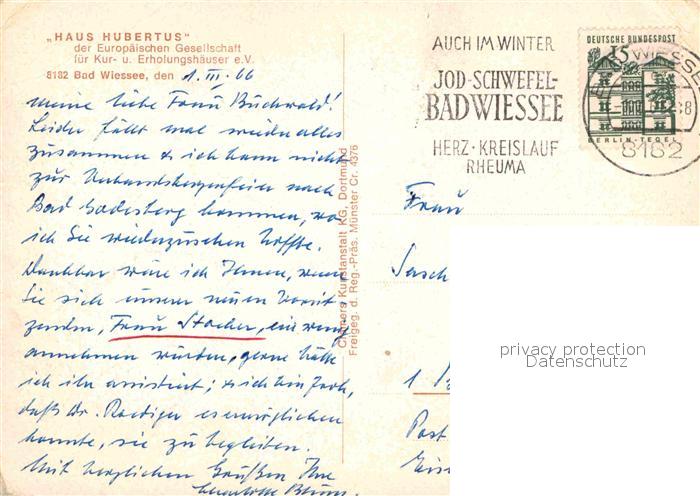 „HAUS HUBERTUS"
der Europäischen Gesellschaft
für Kur- u. Erholungshäuser e.V.
8182 Bad Wiessee, den 1. III. 66
meine liebe Frau Buchwald!
Leider fällt mal wieder alles
zusammen & ich kann nicht
zur Verbandsbergfeier nach
Bad Godesberg kommen, wo
ich Sie wiederzusehen hoffte.
Dankbar wäre ich Ihnen, wenn
Sie sich unserer neuen Vorsit-
zenden, Frau Stocker, ein wenig
annehmen würden, gerne hätte
ich ihr assistiert; & ich bin froh,
daß Dr. Roediger es ermöglichen
konnte, sie zu begleiten.
Mit herzlichen Grüßen Ihre
Blum.
Cramers Kunstanstalt KG, Dortmund
Freigeg. d. Reg.-Präs. Münster Cr. 4376
AUCH IM WINTER
JOD-SCHWEFEL-
BAD WIESSEE
HERZ·KREISLAUF
RHEUMA
DEUTSCHE BUNDESPOST
15
BERLIN-TEGEL
BAD WIESSEE
8182
Frau
1
Post
privacy protection
Datenschutz